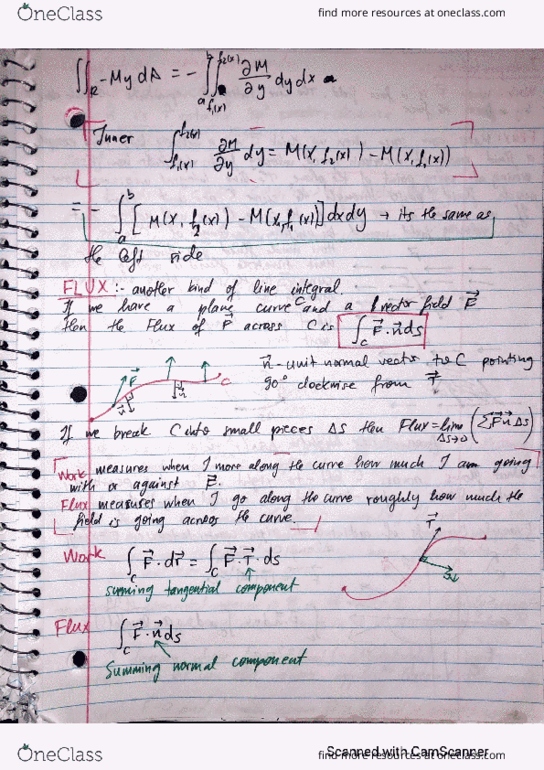 OneClass
find more resources at oneclass.com
∬_R -My dA = - ∫_a^b ∫_{f₁(x)}^{f₂(x)} ∂M/∂y dy dx
Inner ∫_{f₁(x)}^{f₂(x)} ∂M/∂y dy = M(x, f₂(x)) - M(x, f₁(x))
= - ∫_a^b [M(x, f₂(x)) - M(x, f₁(x))] dxdy → its the same as
the left side
FLUX :- another kind of line integral.
If we have a plane curve C and a vector field F⃗
then the Flux of F⃗ across C is ∫_C F⃗·n⃗ds
n⃗ - unit normal vector to C pointing
90° clockwise from T⃗
F⃗
C
If we break C into small pieces ΔS then Flux = lim_{ΔS→0} (ΣF⃗·n⃗ΔS)
Work measures when I more along the curve how much I am going
with or against F⃗.
Flux measures when I go along the curve roughly how much the
field is going across the curve.
Work ∫_C F⃗·dr⃗ = ∫_C F⃗·T⃗·ds
summing tangential component
T⃗
Flux ∫_C F⃗·n⃗ds
Summing normal component
Scanned with CamScanner
OneClass
find more resources at oneclass.com